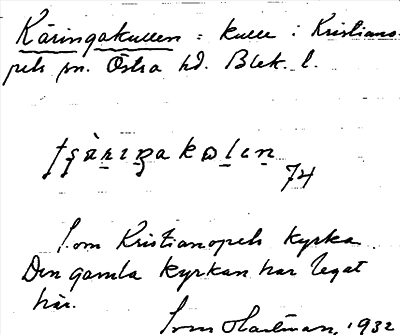 Käringakullen: kulle i Kristiano-
pels sn. Östra hd. Blek. l.
74
S. om Kristianopels kyrka.
Den gamla kyrkan har legat
här.
Hartman, 1932